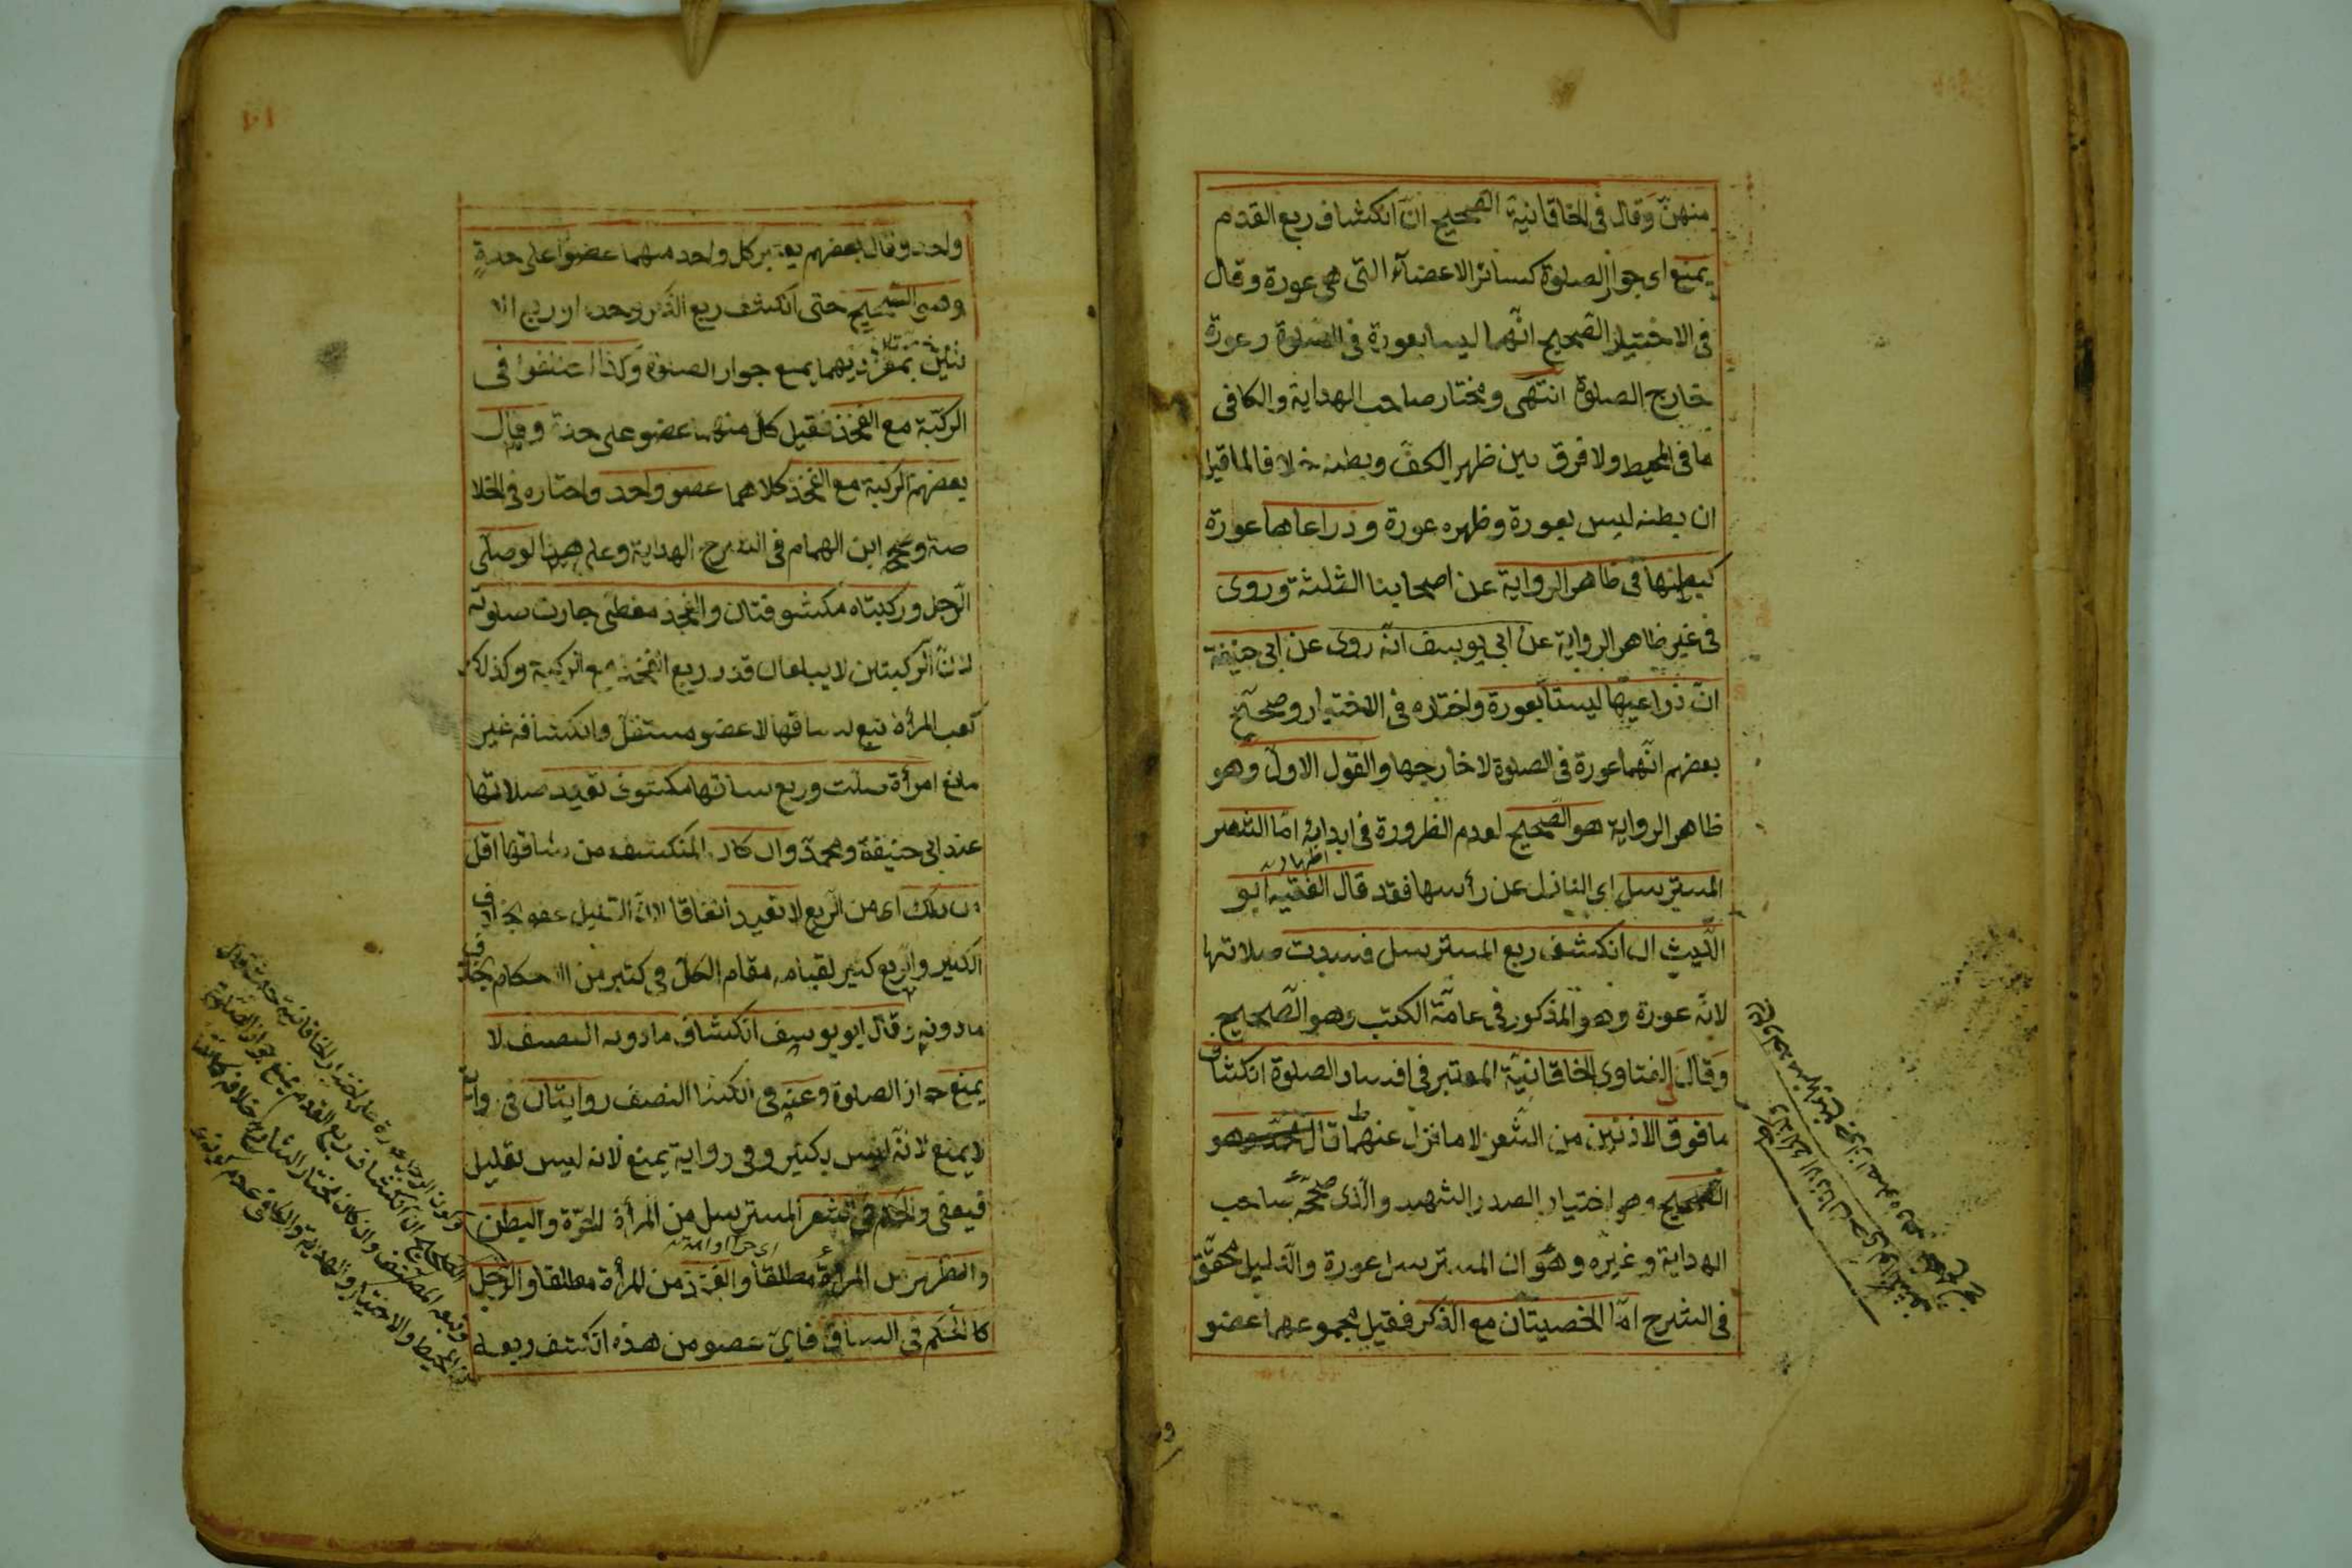 منهنّ وقال فى الخاقانية الصحيح انّ انكشاف ربع القدم
يمنع اى جواز الصلوة كسائر الاعضآء التى هى عورة وقال
فى الاختيار الصحيح انّهما ليسا بعورة فى الصلوة وعورة
خارج الصلوة انتهى ومختار صاحب الهداية والكافى
ما فى المحيط ولا فرق بين ظهر الكفّ وبطنه خلافا لما قيل
ان بطنه ليس بعورة وظهره عورة وذراعاها عورة
كبطنها فى ظاهر الرواية عن اصحابنا الثلثة وروى
فى غير ظاهر الرواية عن ابى يوسف انّه روى عن ابى حنيفة
انّ ذراعيها ليستا بعورة واختاره فى الاختيار وصحّح
بعضهم انّهما عورة فى الصلوة لا خارجها والقول الاول وهو
ظاهر الرواية هو الصّحيح لعدم الظرورة فى ابدائه امّا الشعر
المسترسل اى النازل عن رأسها فقد قال الفقيه ابو
اللّيث ان انكشف ربع المسترسل فسدت صلاتها
لانّه عورة وهو المذكور فى عامّة الكتب وهو الصّحيح
وقال فى الفتاوى الخاقانيّة المعتبر فى افساد الصلوة انكشاف
ما فوق الاذنين من الشّعر لا ما نزل عنهما قال وهو
الصّحيح وهو اختيار الصدر الشهيد والّذى صحّحه صاحب
الهداية وغيره وهو ان المسترسل عورة والدليل محقّق
فى الشرح امّا الخصيتان مع الذكر فقيل مجموعهما عضو
واحد وقال بعضهم يعتبر كل واحد منهما عضوا على حدةٍ
وهو الصّحيح حتى انكشف ربع الذّكر وحده او ربع الا
نثيين بمفرديهما يمنع جواز الصلوة وكذا اختلفوا فى
الركبة مع الفخذ فقيل كلّ منهما عضو على حدة وقال
بعضهم الركبة مع الفخذ كلاهما عضو واحد واختاره فى الخلا
صة وصحّحه ابن الهمام فى الشرح الهداية وعلى هذا لو صلّى
الرّجل وركبتاه مكشوفتان والفخذ مغطّى جازت صلوته
لانّ الركبتين لا يبلغان قدر ربع الفخذ مع الركبة وكذلك
كعب المرأة تبع لساقها لا عضو مستقلّ وانكشافه غير
مانع امرأة صلّت وربع ساقها مكشوف تعيد صلاتها
عند ابى حنيفة ومحمّد وان كان المنكشف من ساقها اقل
من ذلك اى من الرّبع لا تعيد اتفاقا لانّ القليل عفو بخلاف
الكثير والرّبع كثير لقيامه مقام الكلّ فى كثير من الاحكام بخلاف
ما دونه وقال ابو يوسف انكشاف ما دون النصف لا
يمنع جواز الصلوة وعنه فى انكشاف النصف روايتان فى رواية
لا يمنع لانّه ليس بكثير وفى رواية يمنع لانه ليس بقليل
فيعفى والحكم فى شعر المسترسل من المرأة الحرّة والبطن
والظّهر من المرأة مطلقا والفخذ من المرأة مطلقا والرّجل
كالحكم فى الساق فاىّ عضو من هذه انكشف ربعه